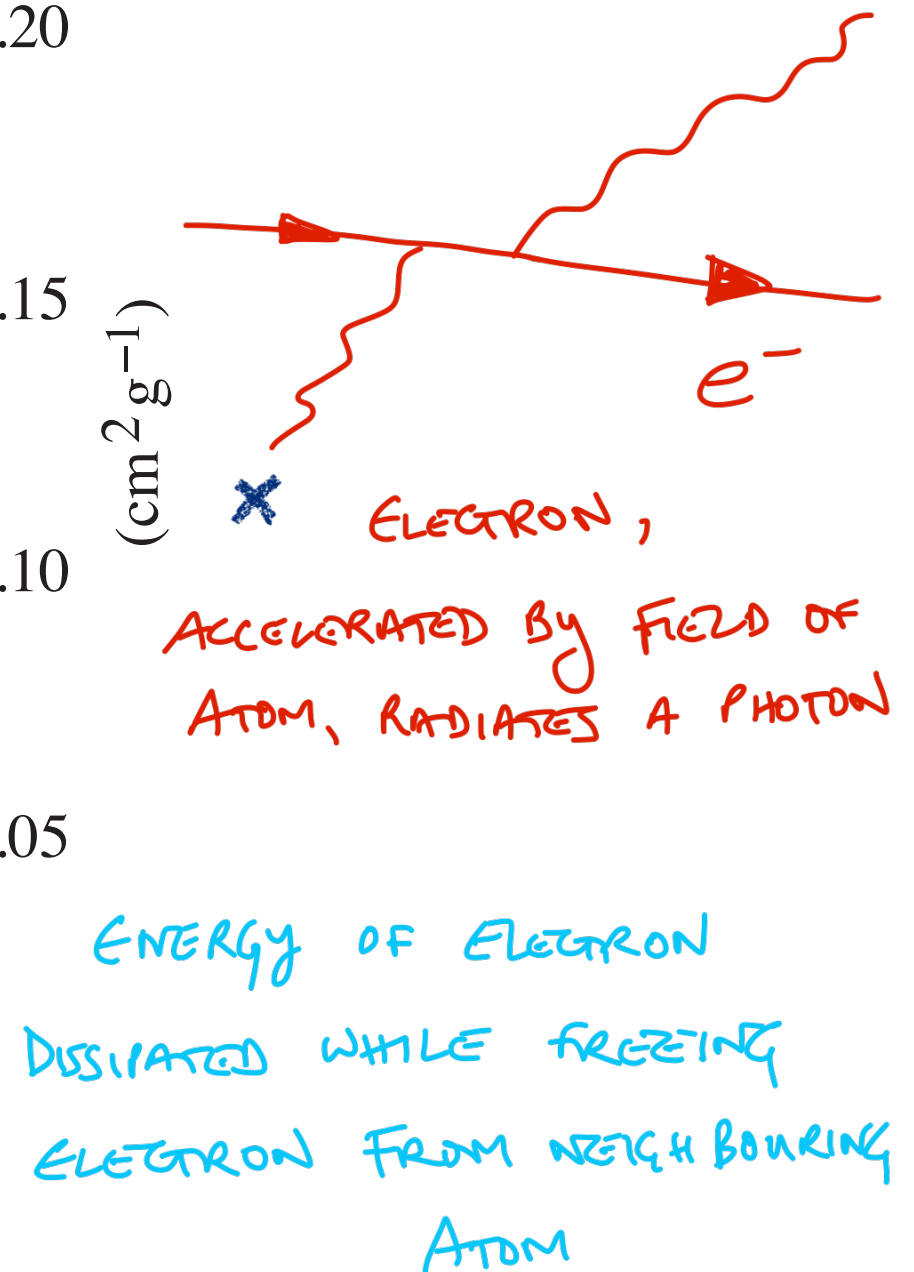 .20
.15
(cm² g⁻¹)
e⁻
ELECTRON,
.10
ACCELERATED BY FIELD OF
ATOM, RADIATES A PHOTON
.05
ENERGY OF ELECTRON
DISSIPATED WHILE FREEING
ELECTRON FROM NEIGHBOURING
ATOM